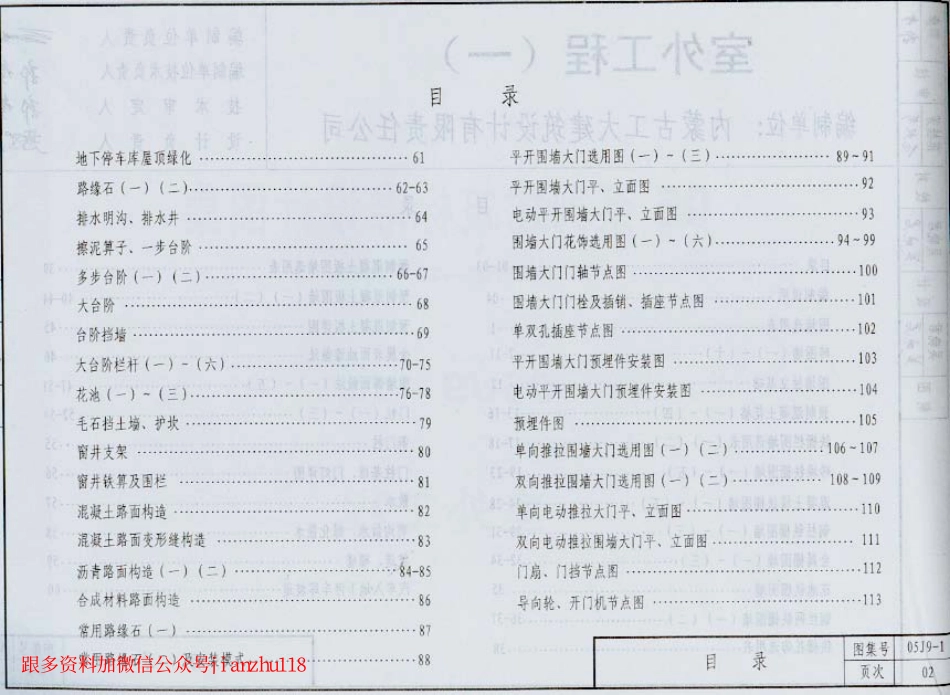 目 录
地下停车库屋顶绿化 61
路缘石(一)(二) 62-63
排水明沟、排水井 64
擦泥箅子、一步台阶 65
多步台阶(一)(二) 66-67
大台阶 68
台阶挡墙 69
大台阶栏杆(一)-(六) 70-75
花池(一)-(三) 76-78
毛石挡土墙、护坎 79
窗井支架 80
窗井铁箅及围栏 81
混凝土路面构造 82
混凝土路面变形缝构造 83
沥青路面构造(一)(二) 84-85
合成材料路面构造 86
常用路缘石(一) 87
88
平开围墙大门选用图(一)~(三) 89~91
平开围墙大门平、立面图 92
电动平开围墙大门平、立面图 93
围墙大门花饰选用图(一)~(六) 94~99
围墙大门门轴节点图 100
围墙大门门栓及插销、插座节点图 101
单双孔插座节点图 102
平开围墙大门预埋件安装图 103
电动平开围墙大门预埋件安装图 104
预埋件图 105
单向推拉围墙大门选用图(一)(二) 106~107
双向推拉围墙大门选用图(一)(二) 108~109
单向电动推拉大门平、立面图 110
双向电动推拉围墙大门平、立面图 111
门扇、门挡节点图 112
导向轮、开门机节点图 113
目 录
图集号 05J9-1
页次 02
跟多资料加微信公众号Tanzhu118